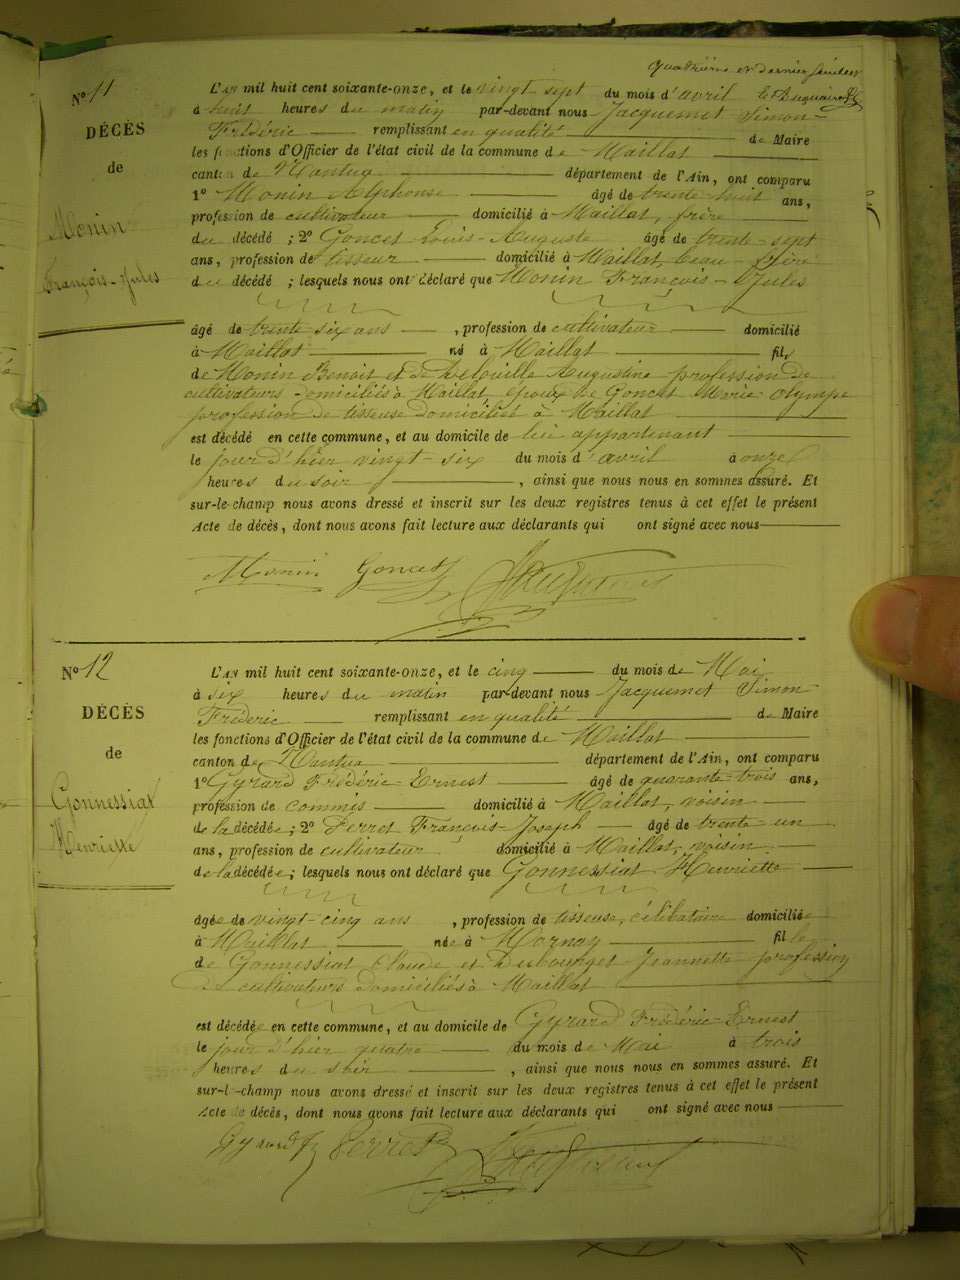 Quatrième et dernier feuillet
N° 11
DÉCÈS
de
Monin
François-Jules
L'AN mil huit cent soixante-onze, et le vingt sept du mois d'avril
à huit heures du matin par-devant nous Jacquemet Simon-
Fréderic remplissant en qualité de Maire
les fonctions d'Officier de l'état civil de la commune de Maillat
canton de Nantua département de l'Ain, ont comparu
1° Monin Alphonse âgé de trente huit ans,
profession de cultivateur domicilié à Maillat, frère
du décédé ; 2° Goncet Louis-Auguste âgé de trente-sept
ans, profession de tisseur domicilié à Maillat, beau-frère
du décédé ; lesquels nous ont déclaré que Monin François-Jules
âgé de trente six ans , profession de cultivateur domicilié
à Maillat né à Maillat fils
de Monin Benoit et de Augustine profession de
cultivateurs domiciliés à Maillat, époux de Goncet Marie Olympe
profession de tisseuse domiciliée à Maillat
est décédé en cette commune, et au domicile de lui appartenant
le jour d'hier vingt-six du mois d'avril à onze
heures du soir , ainsi que nous nous en sommes assuré. Et
sur-le-champ nous avons dressé et inscrit sur les deux registres tenus à cet effet le présent
Acte de décès, dont nous avons fait lecture aux déclarants qui ont signé avec nous
Monin Goncet Jacquemet
N° 12
DÉCÈS
de
Gonnessiat
Henriette
L'AN mil huit cent soixante-onze, et le cinq du mois de Mai
à six heures du matin par-devant nous Jacquemet Simon-
Fréderic remplissant en qualité de Maire
les fonctions d'Officier de l'état civil de la commune de Maillat
canton de Nantua département de l'Ain, ont comparu
1° Gyrard Frédéric-Ernest âgé de quarante-trois ans,
profession de commis domicilié à Maillat, voisin
de la décédée ; 2° Perret François-Joseph âgé de trente-un
ans, profession de cultivateur domicilié à Maillat, voisin
de la décédée ; lesquels nous ont déclaré que Gonnessiat Henriette
âgée de vingt-cinq ans , profession de tisseuse, célibataire domiciliée
à Maillat née à Mornay fille
de Gonnessiat Claude et Dubourget Jeannette profession
de cultivateurs domiciliés à Maillat
est décédée en cette commune, et au domicile de Gyrard Frédéric-Ernest
le jour d'hier quatre du mois de Mai à trois
heures du soir , ainsi que nous nous en sommes assuré. Et
sur-l-champ nous avons dressé et inscrit sur les deux registres tenus à cet effet le présent
Acte de décès, dont nous avons fait lecture aux déclarants qui ont signé avec nous
Gyrard Perret Jacquemet